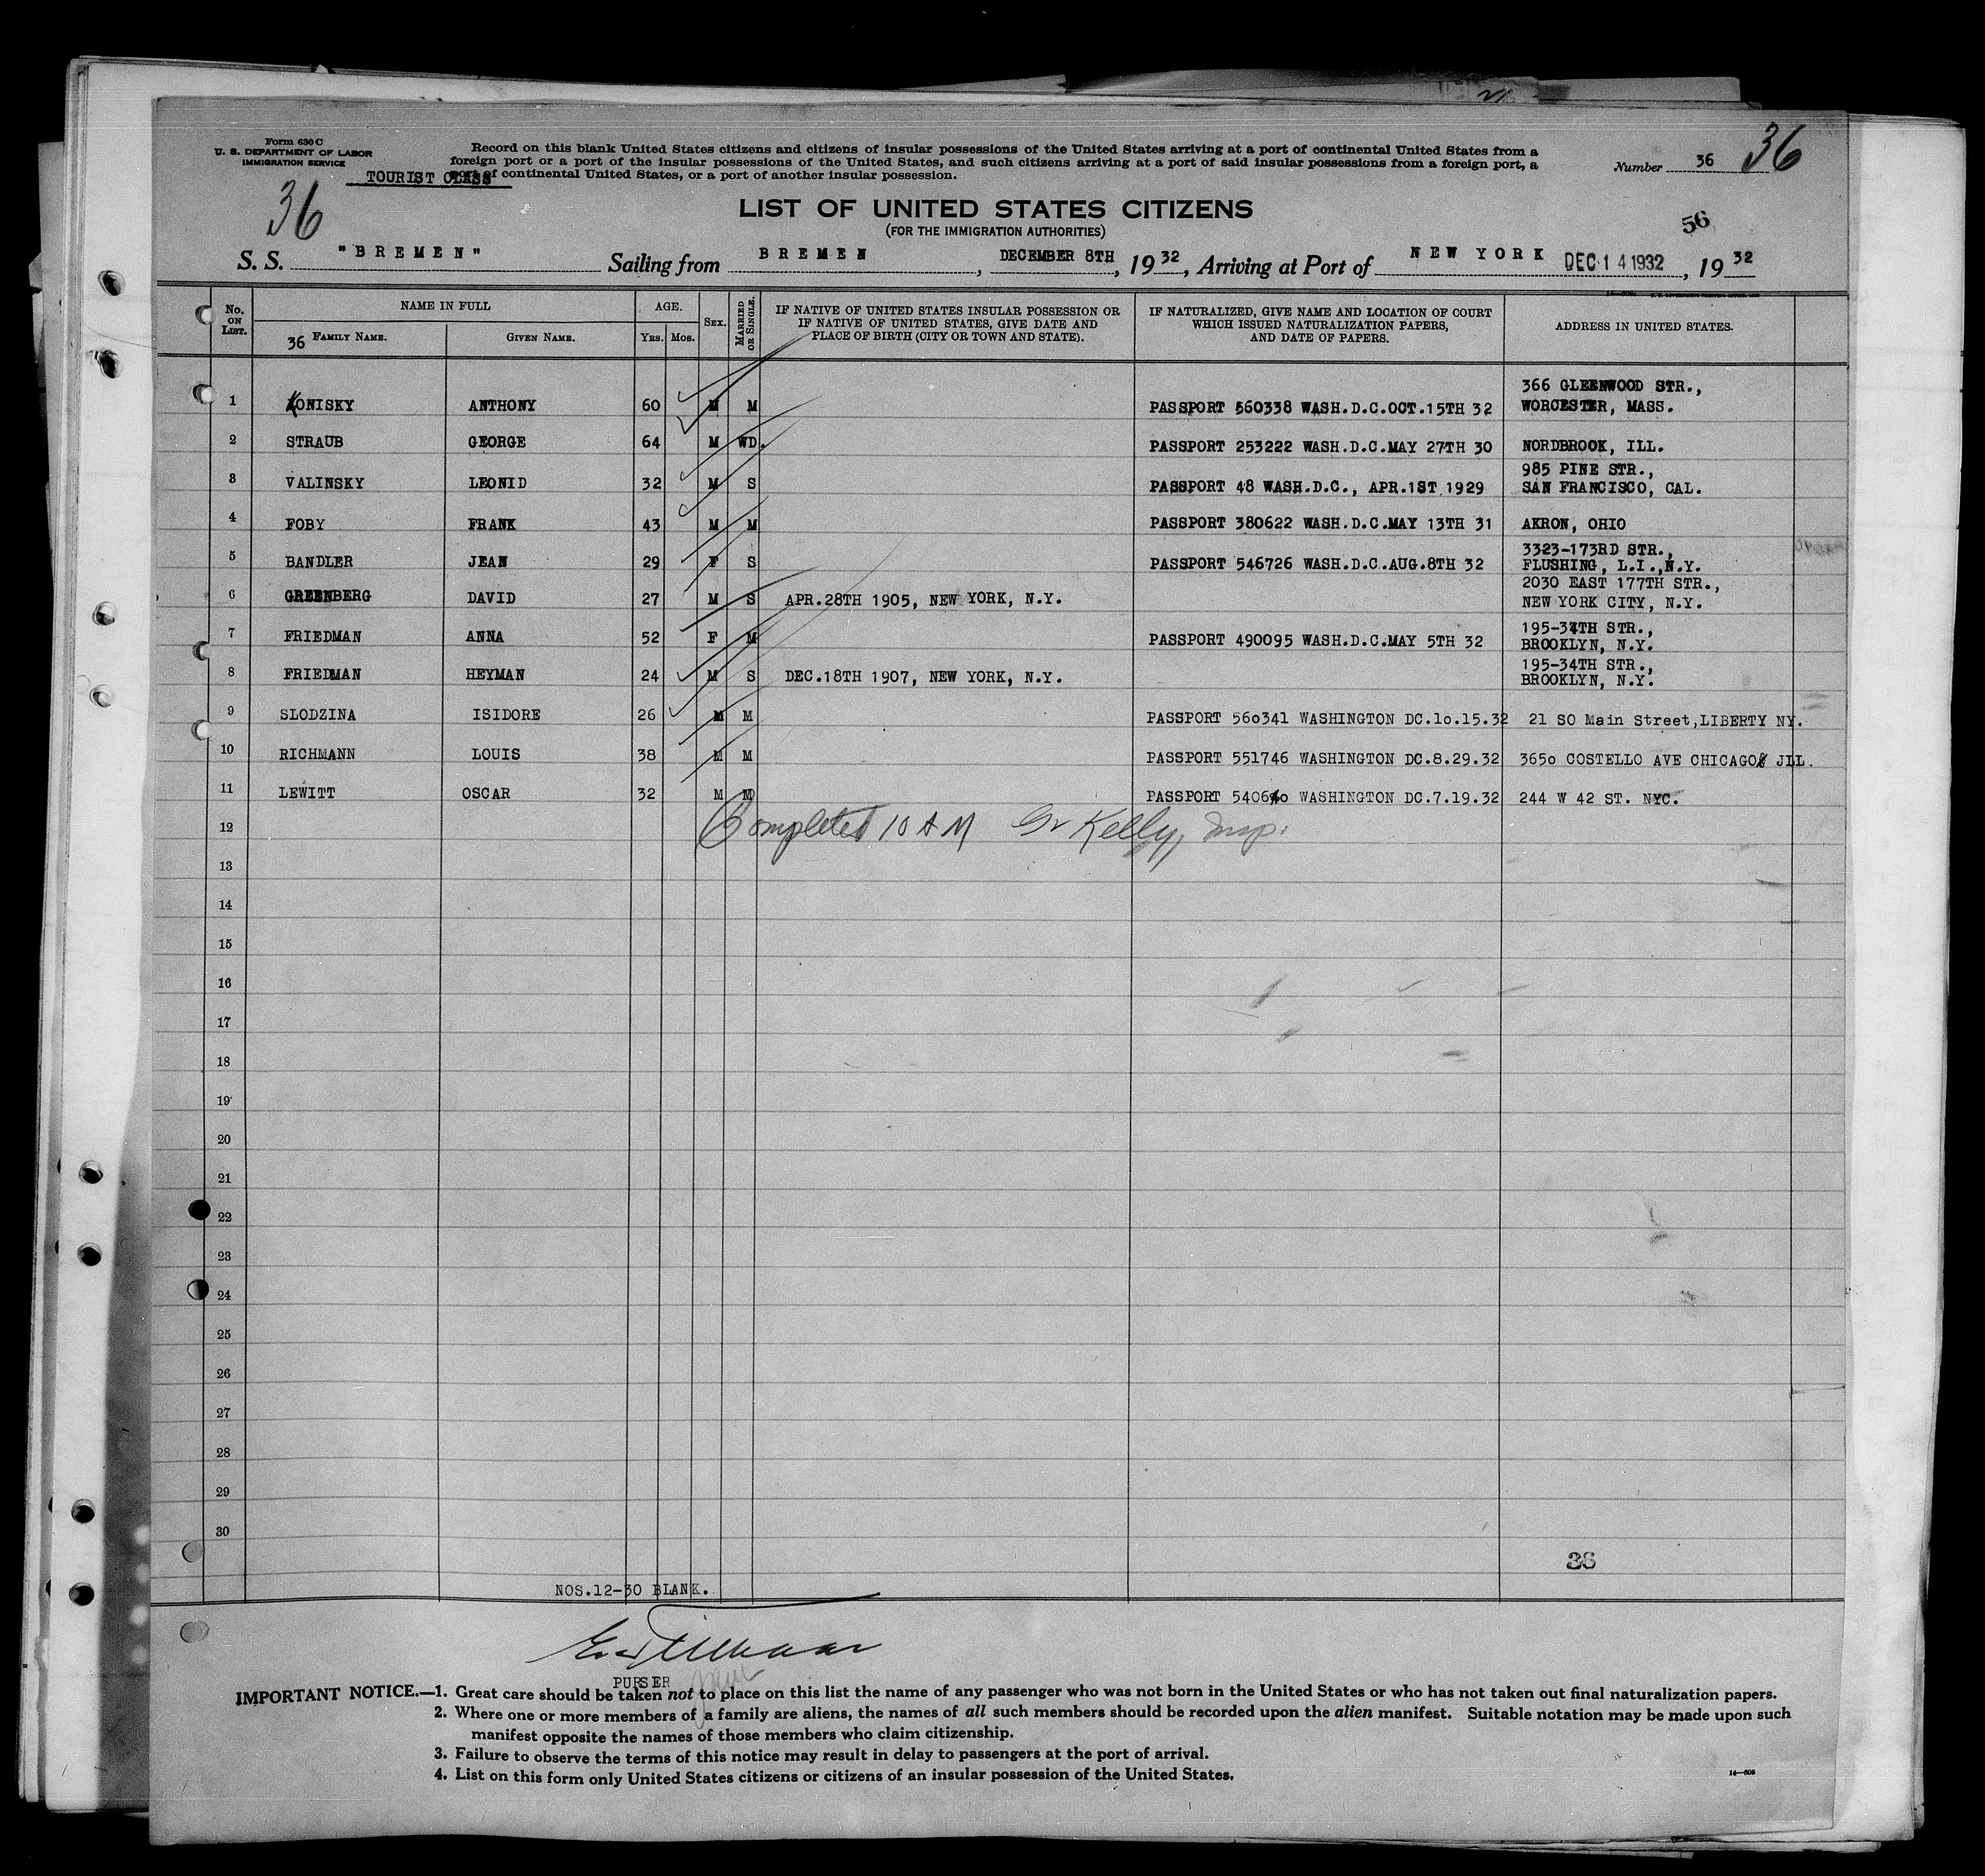 Form 630 C
U. S. DEPARTMENT OF LABOR
IMMIGRATION SERVICE
TOURIST CLASS
36
Record on this blank United States citizens and citizens of insular possessions of the United States arriving at a port of continental United States from a
foreign port or a port of the insular possessions of the United States, and such citizens arriving at a port of said insular possessions from a foreign port, a
port of continental United States, or a port of another insular possession.
Number 36 36
LIST OF UNITED STATES CITIZENS
(FOR THE IMMIGRATION AUTHORITIES)
56
S. S. "BREMEN" Sailing from BREMEN, DECEMBER 8TH, 1932, Arriving at Port of NEW YORK DEC 14 1932, 1932
No. ON LIST. NAME IN FULL AGE. SEX. MARRIED OR SINGLE. IF NATIVE OF UNITED STATES INSULAR POSSESSION OR IF NATIVE OF UNITED STATES, GIVE DATE AND PLACE OF BIRTH (CITY OR TOWN AND STATE). IF NATURALIZED, GIVE NAME AND LOCATION OF COURT WHICH ISSUED NATURALIZATION PAPERS, AND DATE OF PAPERS. ADDRESS IN UNITED STATES.
36 FAMILY NAME. GIVEN NAME. YRS. MOS.
1 KONISKY ANTHONY 60 M M PASSPORT 560338 WASH.D.C.OCT.15TH 32 366 GLEENWOOD STR., WORCESTER, MASS.
2 STRAUB GEORGE 64 M WD. PASSPORT 253222 WASH.D.C.MAY 27TH 30 NORDBROOK, ILL.
3 VALINSKY LEONID 32 M S PASSPORT 48 WASH.D.C., APR.1ST 1929 985 PINE STR., SAN FRANCISCO, CAL.
4 FOBY FRANK 43 M M PASSPORT 380622 WASH.D.C.MAY 13TH 31 AKRON, OHIO
5 BANDLER JEAN 29 F S PASSPORT 546726 WASH.D.C.AUG.8TH 32 3323-173RD STR., FLUSHING, L.I.,N.Y.
6 GREENBERG DAVID 27 M S APR.28TH 1905, NEW YORK, N.Y. 2030 EAST 177TH STR., NEW YORK CITY, N.Y.
7 FRIEDMAN ANNA 52 F M PASSPORT 490095 WASH.D.C.MAY 5TH 32 195-34TH STR., BROOKLYN, N.Y.
8 FRIEDMAN HEYMAN 24 M S DEC.18TH 1907, NEW YORK, N.Y. 195-34TH STR., BROOKLYN, N.Y.
9 SLODZINA ISIDORE 26 M M PASSPORT 56o341 WASHINGTON DC.1o.15.32 21 SO Main Street,LIBERTY NY.
10 RICHMANN LOUIS 38 M M PASSPORT 551746 WASHINGTON DC.8.29.32 365o COSTELLO AVE CHICAGO JLL.
11 LEWITT OSCAR 32 M M PASSPORT WASHINGTON DC.7.19.32 244 W 42 ST. NYC.
Completed 10 AM Kelly, Insp.
12
13
14
15
16
17
18
19
20
21
22
23
24
25
26
27
28
29
30
36
NOS.12-30 BLANK.
PURSER
IMPORTANT NOTICE.—1. Great care should be taken not to place on this list the name of any passenger who was not born in the United States or who has not taken out final naturalization papers.
2. Where one or more members of a family are aliens, the names of all such members should be recorded upon the alien manifest. Suitable notation may be made upon such
manifest opposite the names of those members who claim citizenship.
3. Failure to observe the terms of this notice may result in delay to passengers at the port of arrival.
4. List on this form only United States citizens or citizens of an insular possession of the United States.